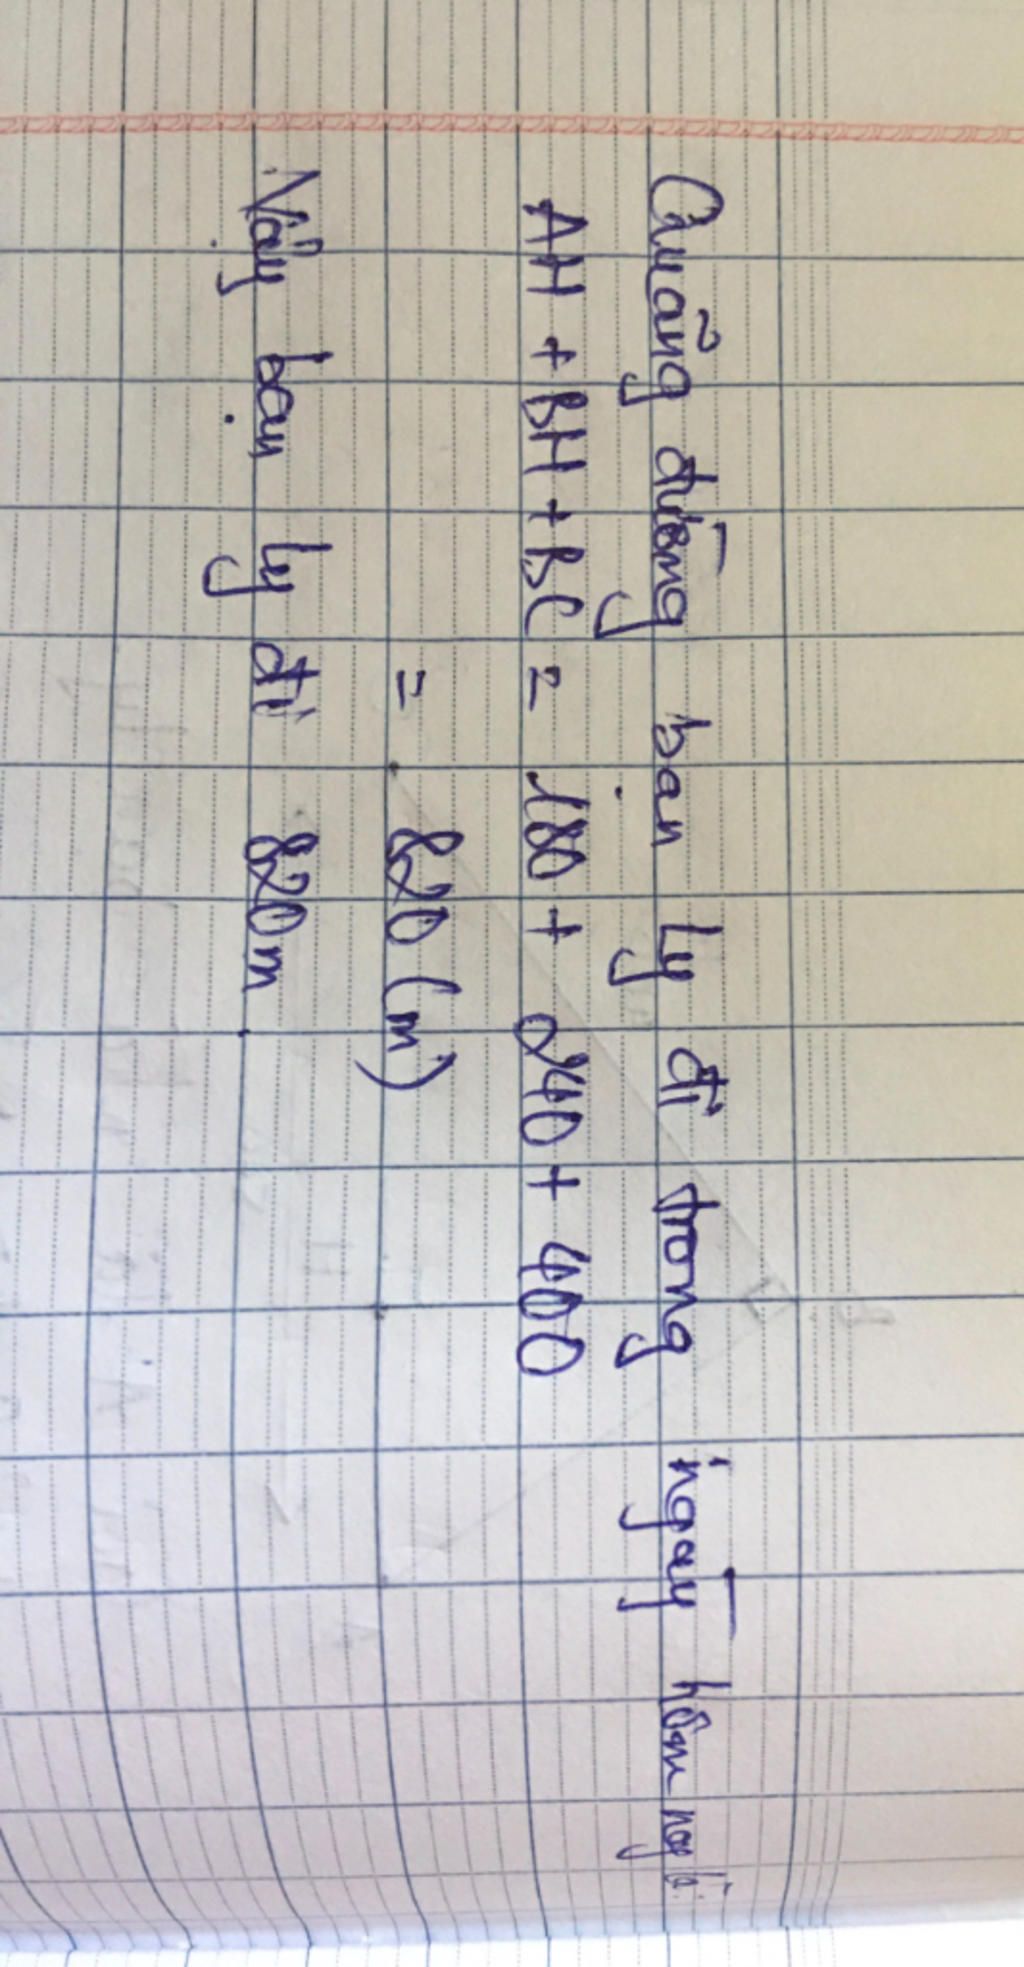 Quãng đường bạn Ly đi trong ngày hôm nay là:
AH + BH + BC = 180 + 240 + 400
= 820 (m)
Vậy bạn Ly đi 820m.